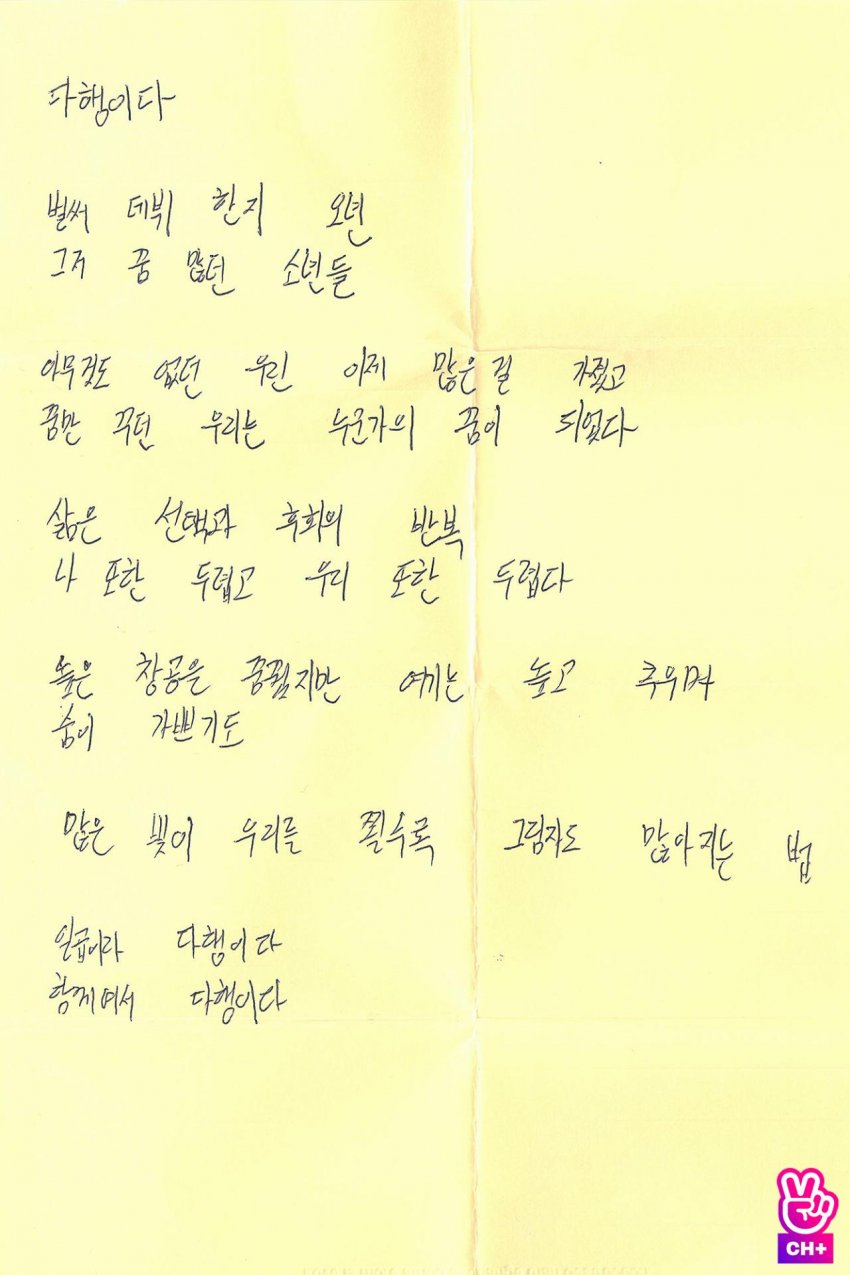 다행이다
벌써 데뷔 한지 오년
그저 꿈 많던 소년들
아무것도 없던 우린 이제 많은걸 가졌고
꿈만 꾸던 우리는 누군가의 꿈이 되었다
삶은 선택과 후회의 반복
나 또한 두렵고 우리 또한 두렵다
높은 창공을 꿈꿨지만 여기는 높고 추우며
숨이 가쁘기도
많은 빛이 우리를 쬘수록 그림자도 많아지는 법
일곱이라 다행이다
함께여서 다행이다
CH+